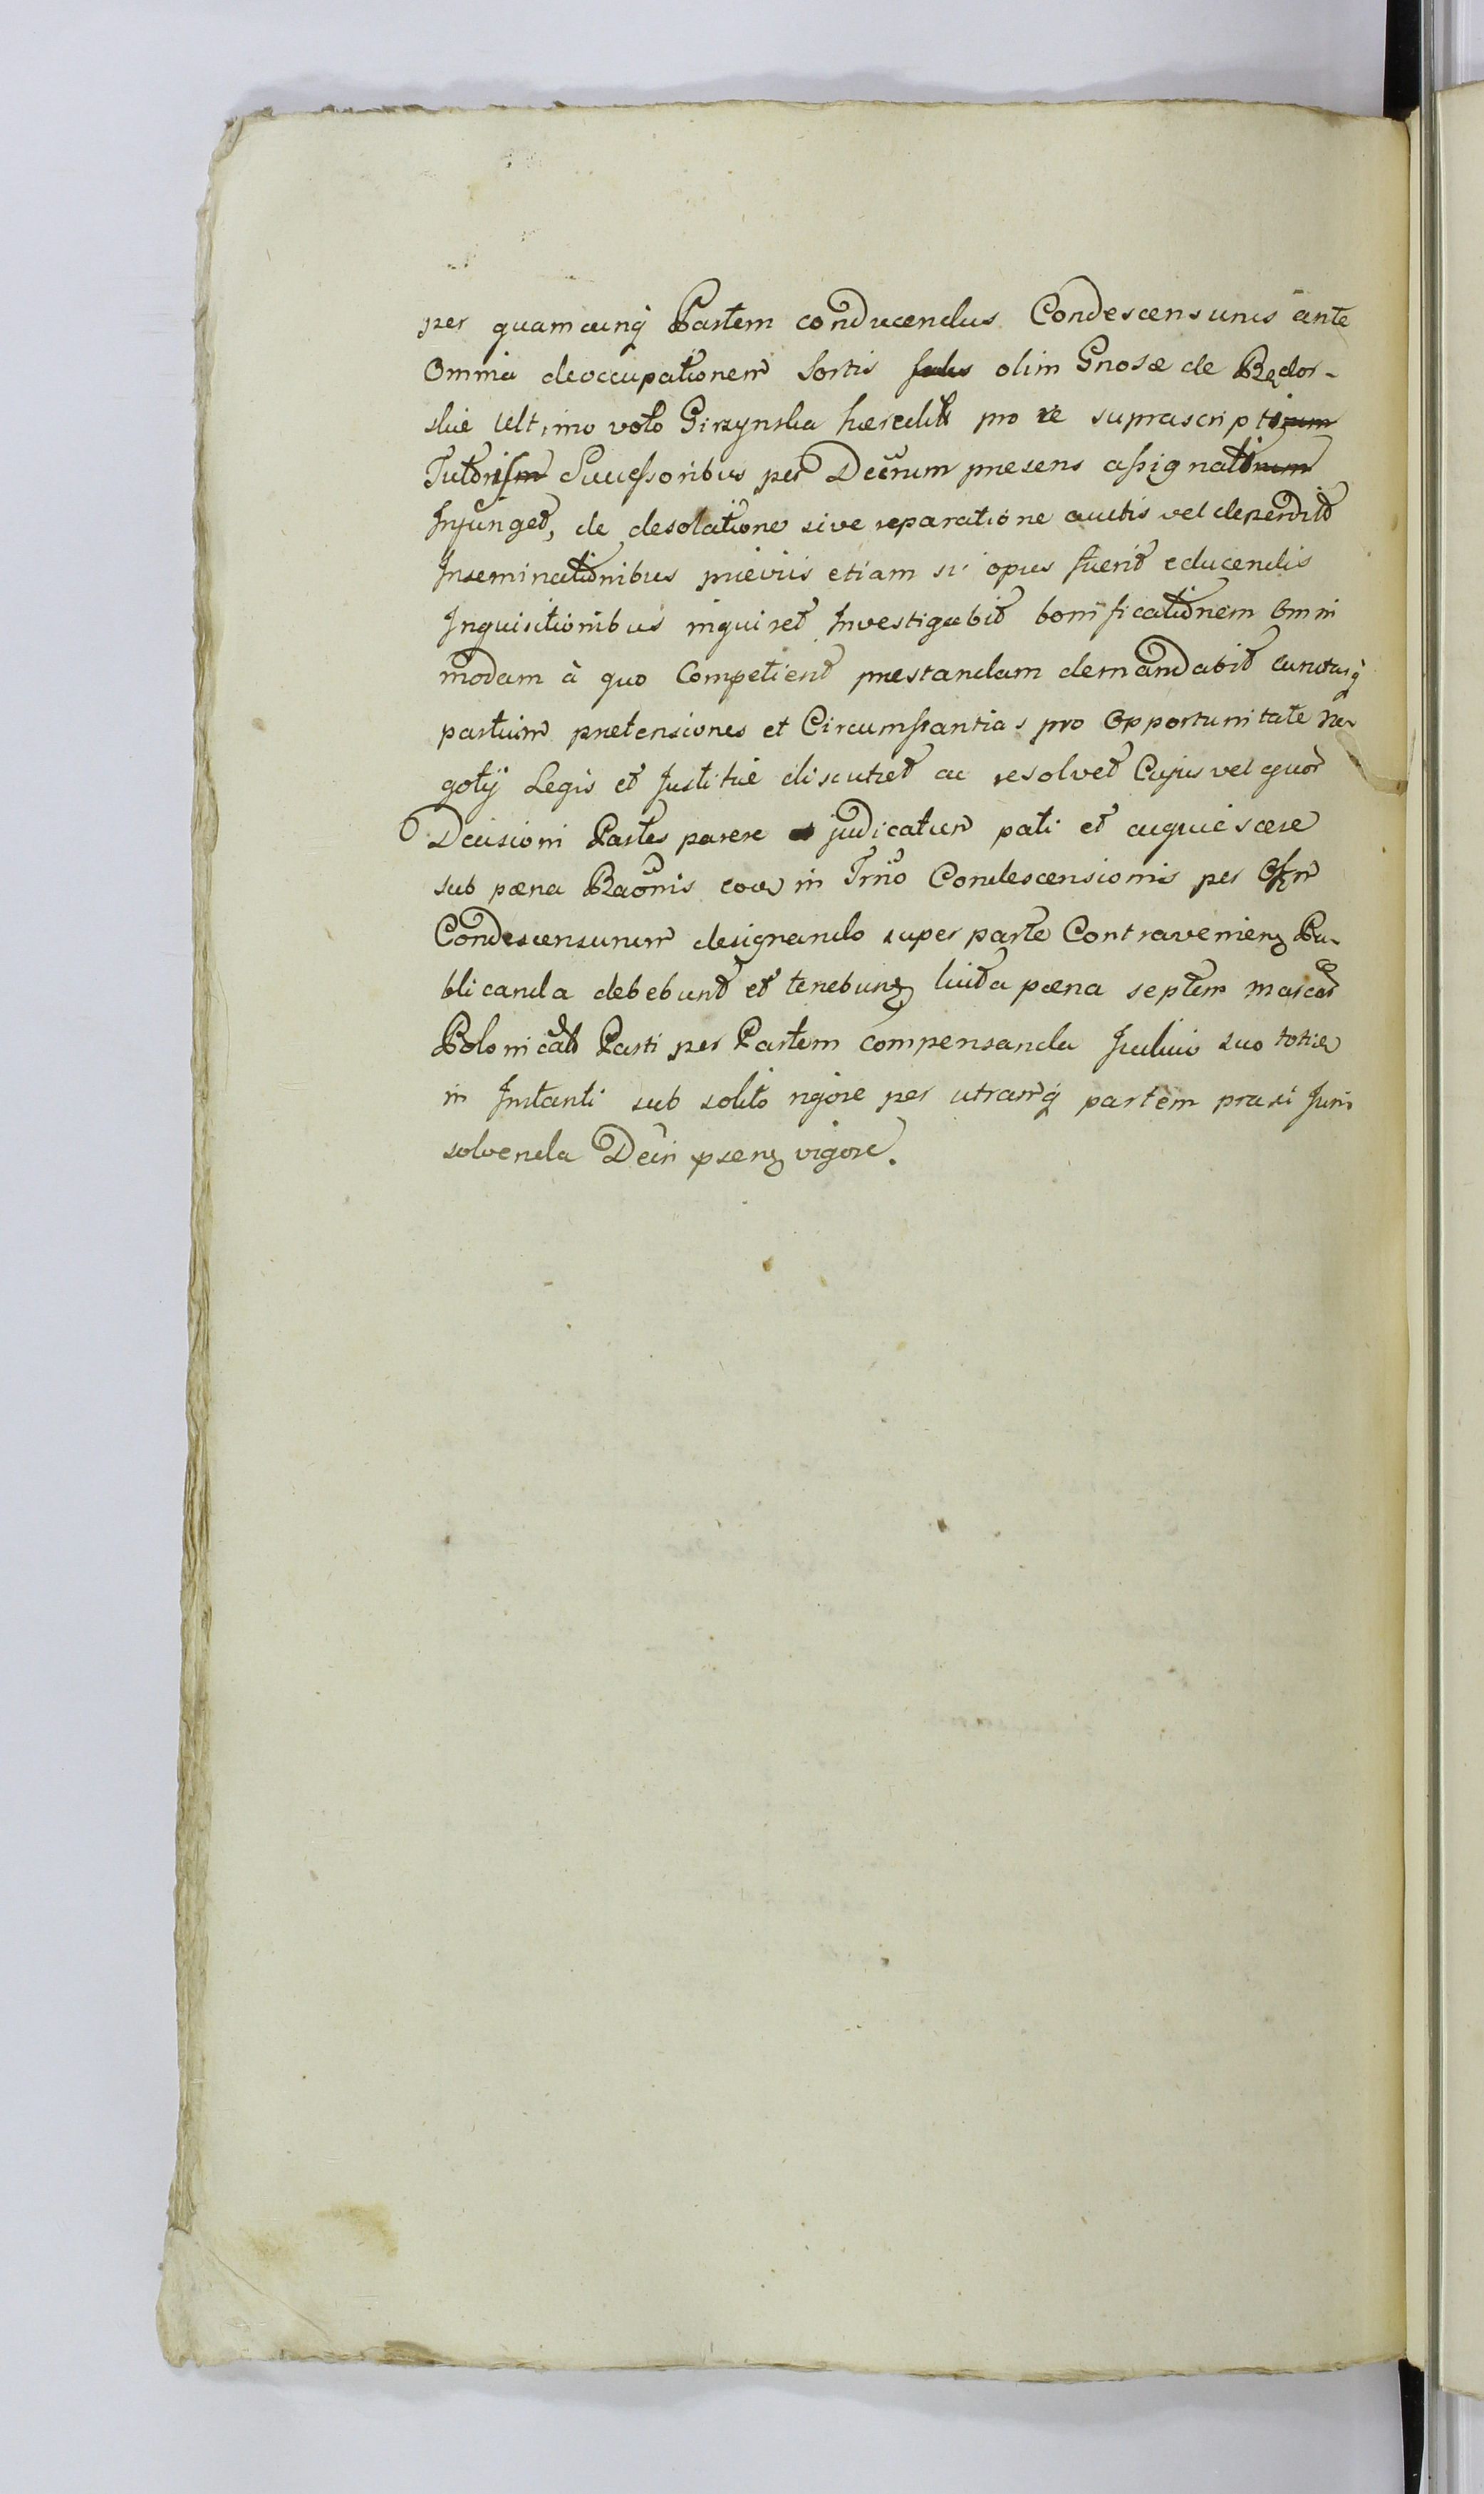 per quamcunq Partem conducendus Condescensurus ante
Omnia deoccupationem Sortis olim Gnosæ de Rędor-
skie Ultimo voto Girzynska hæredit pro re suprascriptorum
Tutoris Successoribus per Decrum presens assignatorum
Injunget, de desolatione sive reparatione auctis vel deperdit
Inseminationibus previis etiam si opus fuerit educendis
Inquisitionibus inquiret Investigabit bonificationem Omni
modam à quo Competierit prestandam demandabit cunctasq
partium pretensiones et Circumstantias pro Opportunitate Ne-
gotij Legis et Justitiæ discutiet ac resolvet Cujus vel quor
Decisioni Partes parere judicatum pati et acquiescere
sub pæna Baōnis eoa in Trno Condescensionis per Offm
Condescensurum designando super parte Contravenien Pu-
blicanda debebunt et tenebun luita pæna septem marcar
Polonical Parti per Partem compensanda Judicio suo toties
in Instanti sub solito rigore per utramq partem praxi Juris
solvenda Decri psen vigore.